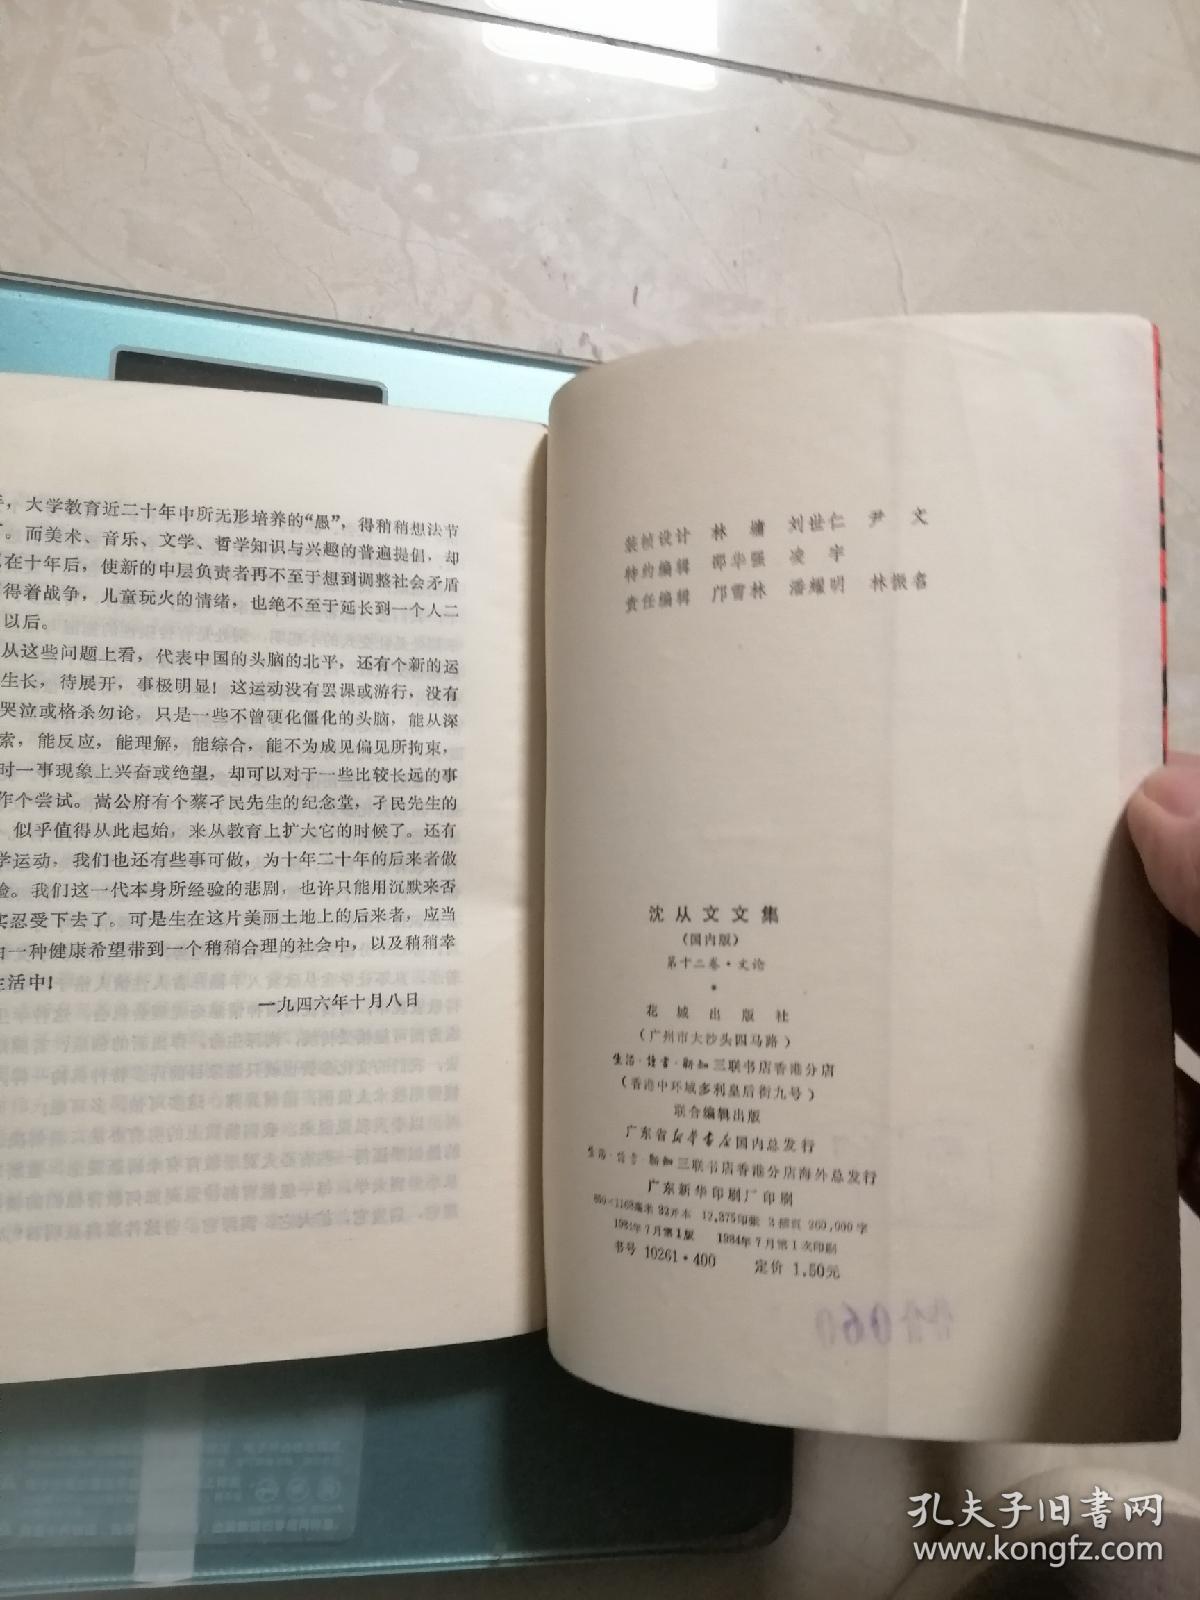 ，大学教育近二十年中所无形培养的“愚”，得稍稍想法节
。而美术、音乐、文学、哲学知识与兴趣的普遍提倡，却
在十年后，使新的中层负责者再不至于想到调整社会矛盾
得着战争，儿童玩火的情绪，也绝不至于延长到一个人二
以后。
从这些问题上看，代表中国的头脑的北平，还有个新的运
生长，待展开，事极明显！这运动没有罢课或游行，没有
哭泣或格杀勿论，只是一些不曾硬化僵化的头脑，能从深
索，能反应，能理解，能综合，能不为成见偏见所拘束，
时一事现象上兴奋或绝望，却可以对于一些比较长远的事
作个尝试。嵩公府有个蔡孑民先生的纪念堂，孑民先生的
似乎值得从此起始，来从教育上扩大它的时候了。还有
学运动，我们也还有些事可做，为十年二十年的后来者做
验。我们这一代本身所经验的悲剧，也许只能用沉默来否
实忍受下去了。可是生在这片美丽土地上的后来者，应当
由一种健康希望带到一个稍稍合理的社会中，以及稍稍幸
生活中！
一九四六年十月八日
装帧设计 林墉 刘世仁 尹文
特约编辑 邵华强 凌宇
责任编辑 邝雪林 潘耀明 林振名
沈从文文集
（国内版）
第十二卷·文论
花城出版社
（广州市大沙头四马路）
生活·读书·新知三联书店香港分店
（香港中环域多利皇后街九号）
联合编辑出版
广东省新华书店国内总发行
生活·读书·新知三联书店香港分店海外总发行
广东新华印刷厂印刷
850×1168毫米 32开本 12,375印张 2插页 260,000字
1984年7月第1版 1984年7月第1次印刷
书号 10261·400 定价 1.50元
060
孔夫子旧书网
www.kongfz.com